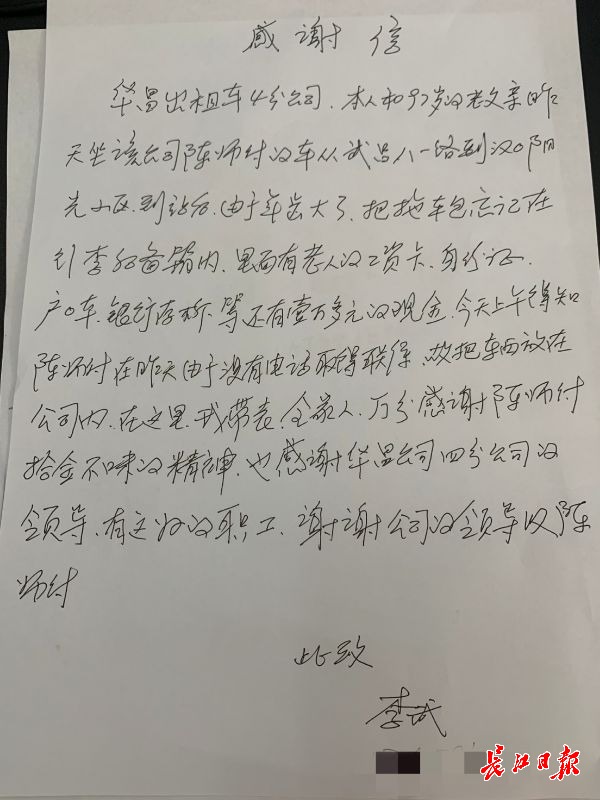 感谢信
华昌出租车4分公司. 本人和97岁的老父亲昨
天坐该公司陈师付的车从武昌八一路到汉口阳
光小区. 到站后. 由于年岁大了. 把拖车包忘记在
行李后备箱内. 里面有老人的工资卡. 身份证.
户口本. 银行存折等还有壹万多元的现金. 今天上午得知
陈师付在昨天由于没有电话取得联係. 故把车包放在
公司内. 在这里. 我带表全家人. 万分感谢陈师付
拾金不昧的精神. 也感谢华昌公司四分公司的
领导. 有这好的职工. 谢谢公司的领导及陈
师付
此致
李武
长江日报